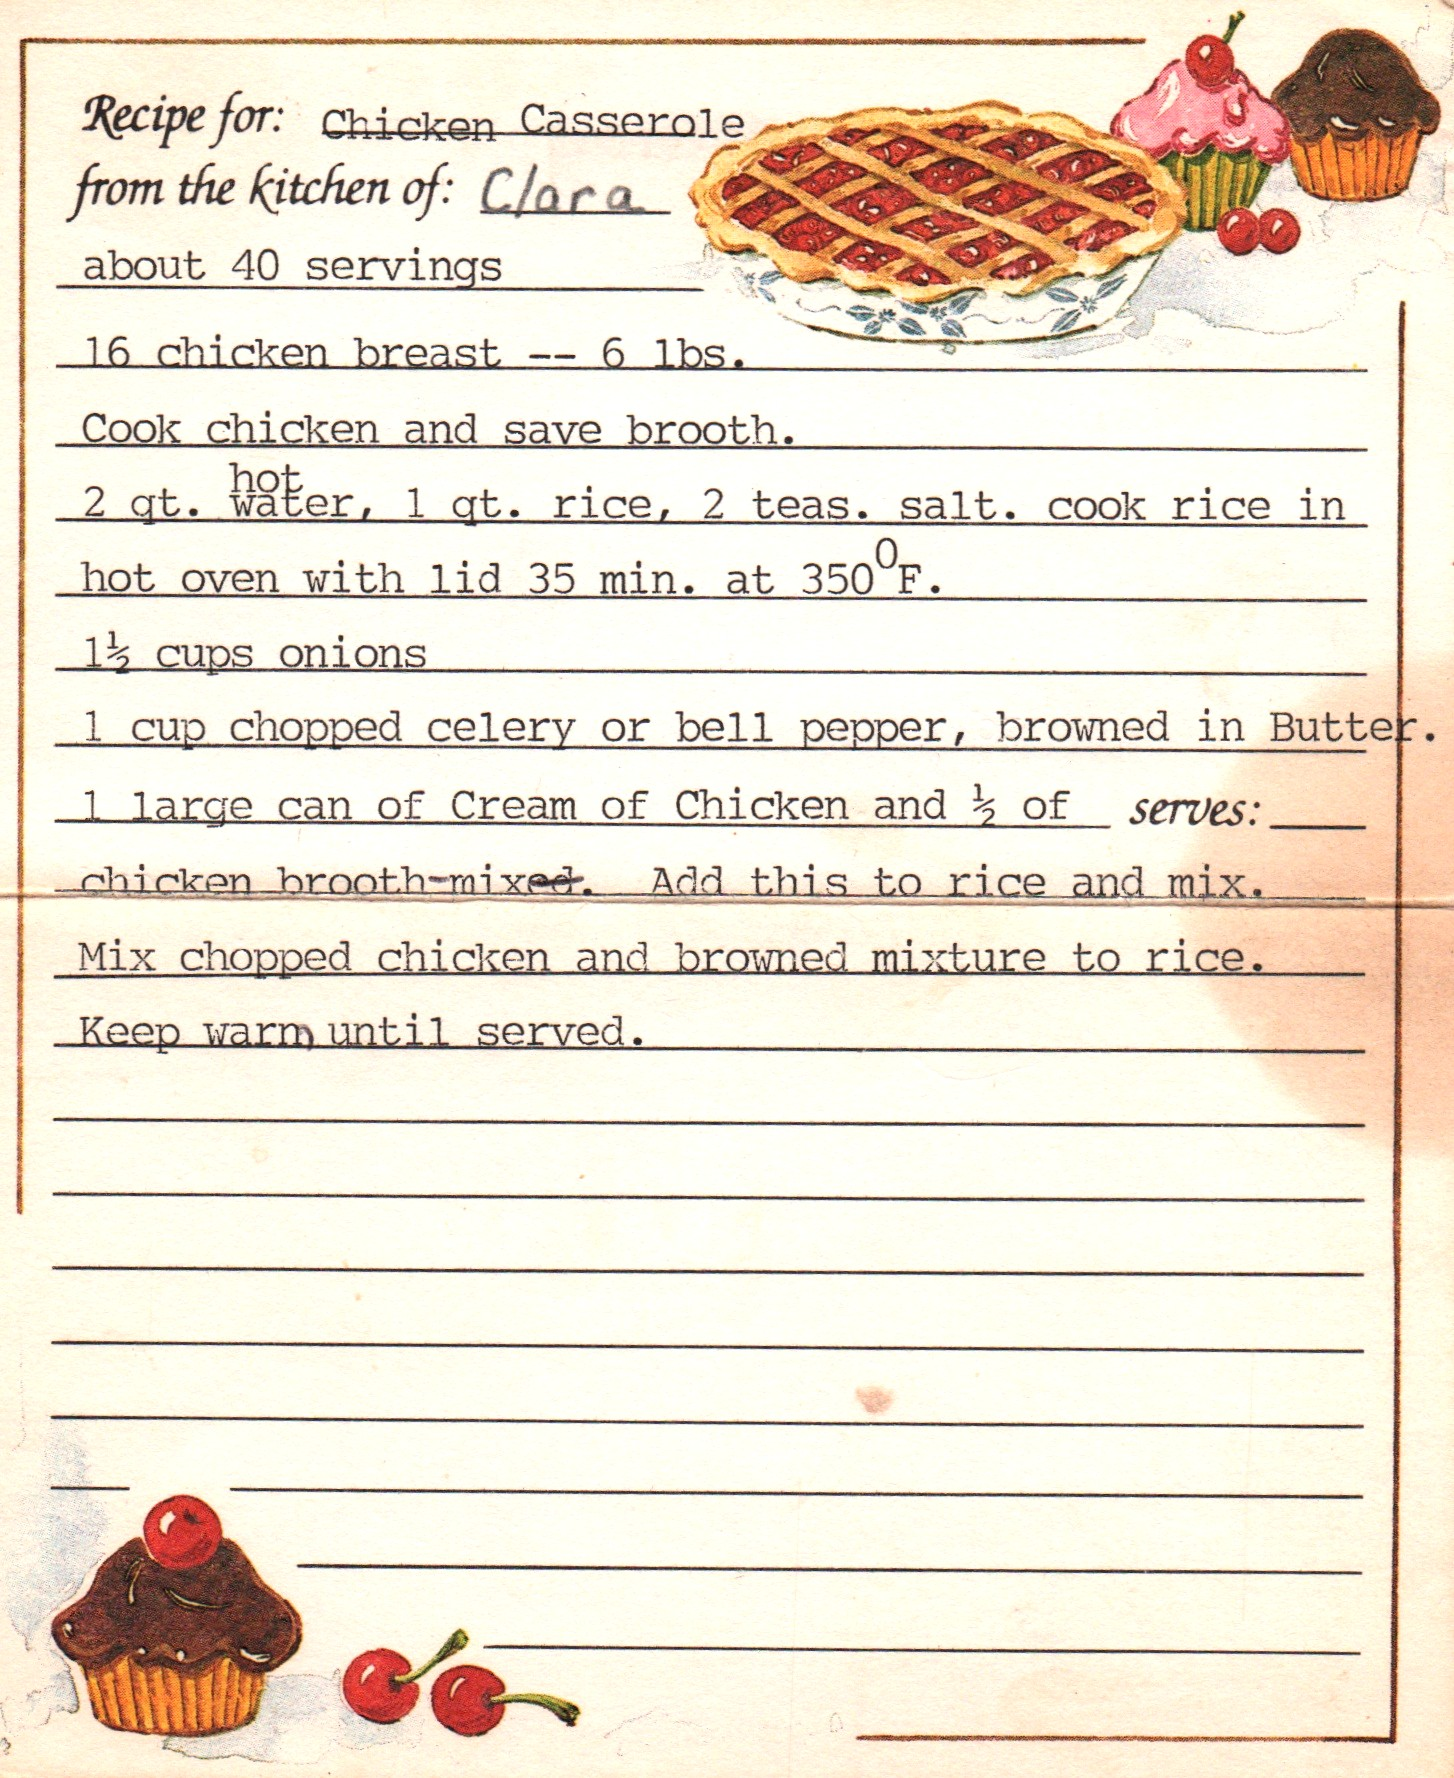 Recipe for: Chicken Casserole
from the kitchen of: Clara
about 40 servings
16 chicken breast -- 6 lbs.
Cook chicken and save brooth.
hot
2 qt. water, 1 qt. rice, 2 teas. salt. cook rice in
hot oven with lid 35 min. at 350°F.
1½ cups onions
1 cup chopped celery or bell pepper, browned in Butter.
1 large can of Cream of Chicken and ½ of serves:
chicken brooth-mixed. Add this to rice and mix.
Mix chopped chicken and browned mixture to rice.
Keep warm until served.